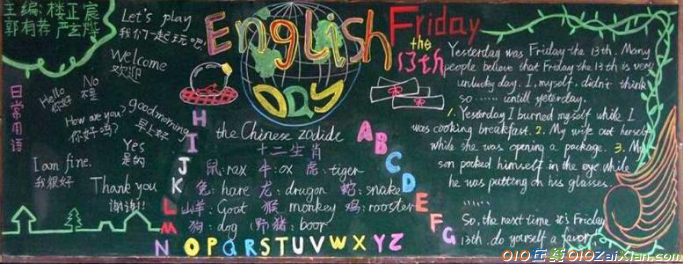 主编: 楼正宸
郭有荐
Let's play
我们一起玩吧!
Welcome
欢迎
日常用语
Hello
你好
No
不是
How are you?
你好吗?
good morning
早上好
I am fine.
我很好
Yes
是的
Thank you
谢谢!
English
Day
Friday
the
13th
the Chinese zodide
十二生肖
鼠: rax 牛: ox 虎: tiger
兔: hare 龙: drugon 蛇: snake
山羊: Goat 猴: monkey 鸡: rooster
狗: dog 野猪: boor
A
B
C
D
E
F
G
H
I
J
K
L
M
N O P Q R S T U V W X Y Z
Yesterday was Friday the 13th. Many
people believe that Friday the 13th is very
unlucky day. I, myself, didn't think
so ...... untill yesterday.
1. Yesterday I burned myself while I
was cooking breakfast. 2. My wife out herself
while she was opening a package. 3. My
son pocked himself in the eye while
he was putting on his glasses.
......
So, the next time it's Friday
13th. do yourself a favor
010在线 010ZaiXian.com